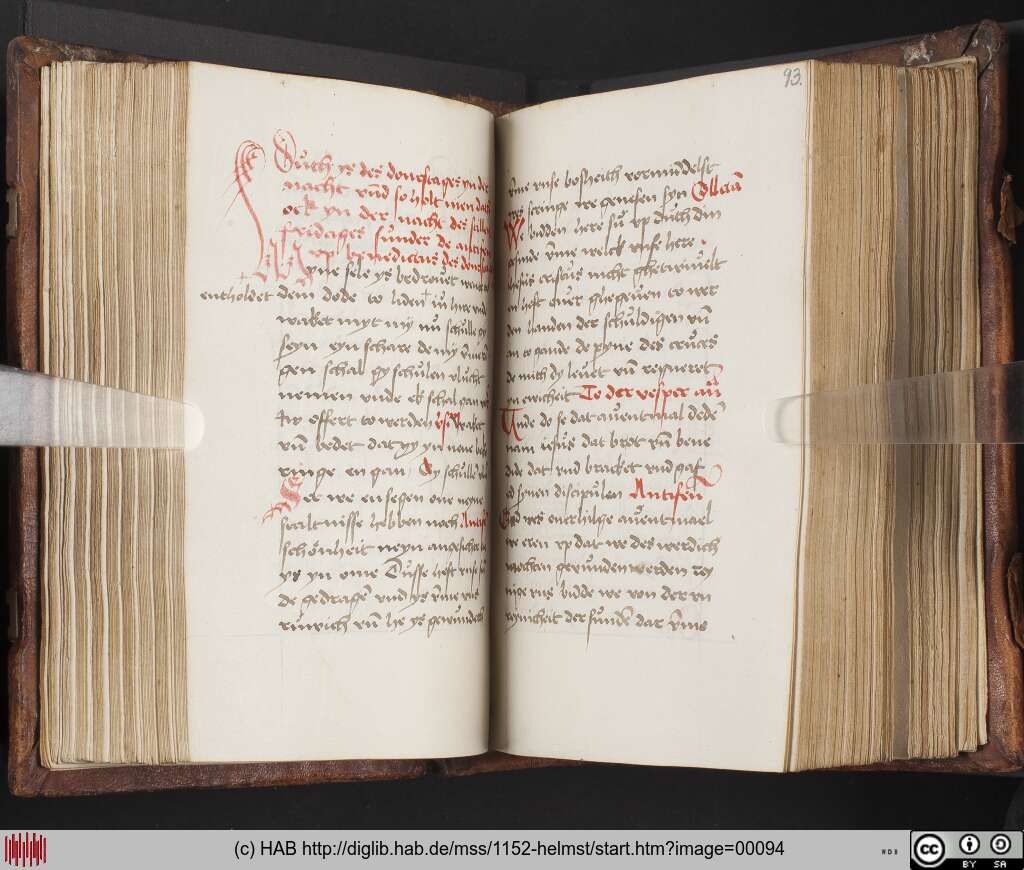 Duth ys des donrstages yn der
nacht vnd so holt men dat
ock yn der nacht des stillen
fridages sunder de antifen
vp benedictus des donrsta
Myne sele ys bedrouet wente to
entholdet dem dode to liden iu hire vnd
waket myt my nu schulle gy
seyn eyn schare de my vmme
gen schal gy schulen vlucht
nemen vnde ek schal gan vor
iw offert to werden Waket
vnd bedet dat gy yn neue beko
ringe en gan Gy schulle
See we en segen one neyne
stalt nisse hebben noch
schönheit neyn angesichte
ys yn ome Dusse heft vnse su
de gedragen vnd ys vmme vns
ruwich vnd he ys gewundet
93.
vme vnse bosheith vormiddelst
wes scringe we genesen syn Collecta
We bidden here su vp duth din
gesinde vme welck vnse here
ihesus cristus nicht ghetwiuelt
en heft ouer ghegeuen to wer
den handen der schuldigen vnd
an to gande de pyne des cruces
de mith dy leuet vnd regneret
yn ewicheit To der vesper an
Unde do se dat auentmal dede
nam iesus dat brot vnd bene
dide dat vnd bracket vnd gaf
od synen discipulen Antifen
God wes ent hilge auentmael
we eren vp dat we des werdich
mochten gewunden werden rey
nige vns bidde we von der vn
reynicheit der sunde dat vme
(c) HAB http://diglib.hab.de/mss/1152-helmst/start.htm?image=00094
WDB
cc
BY SA